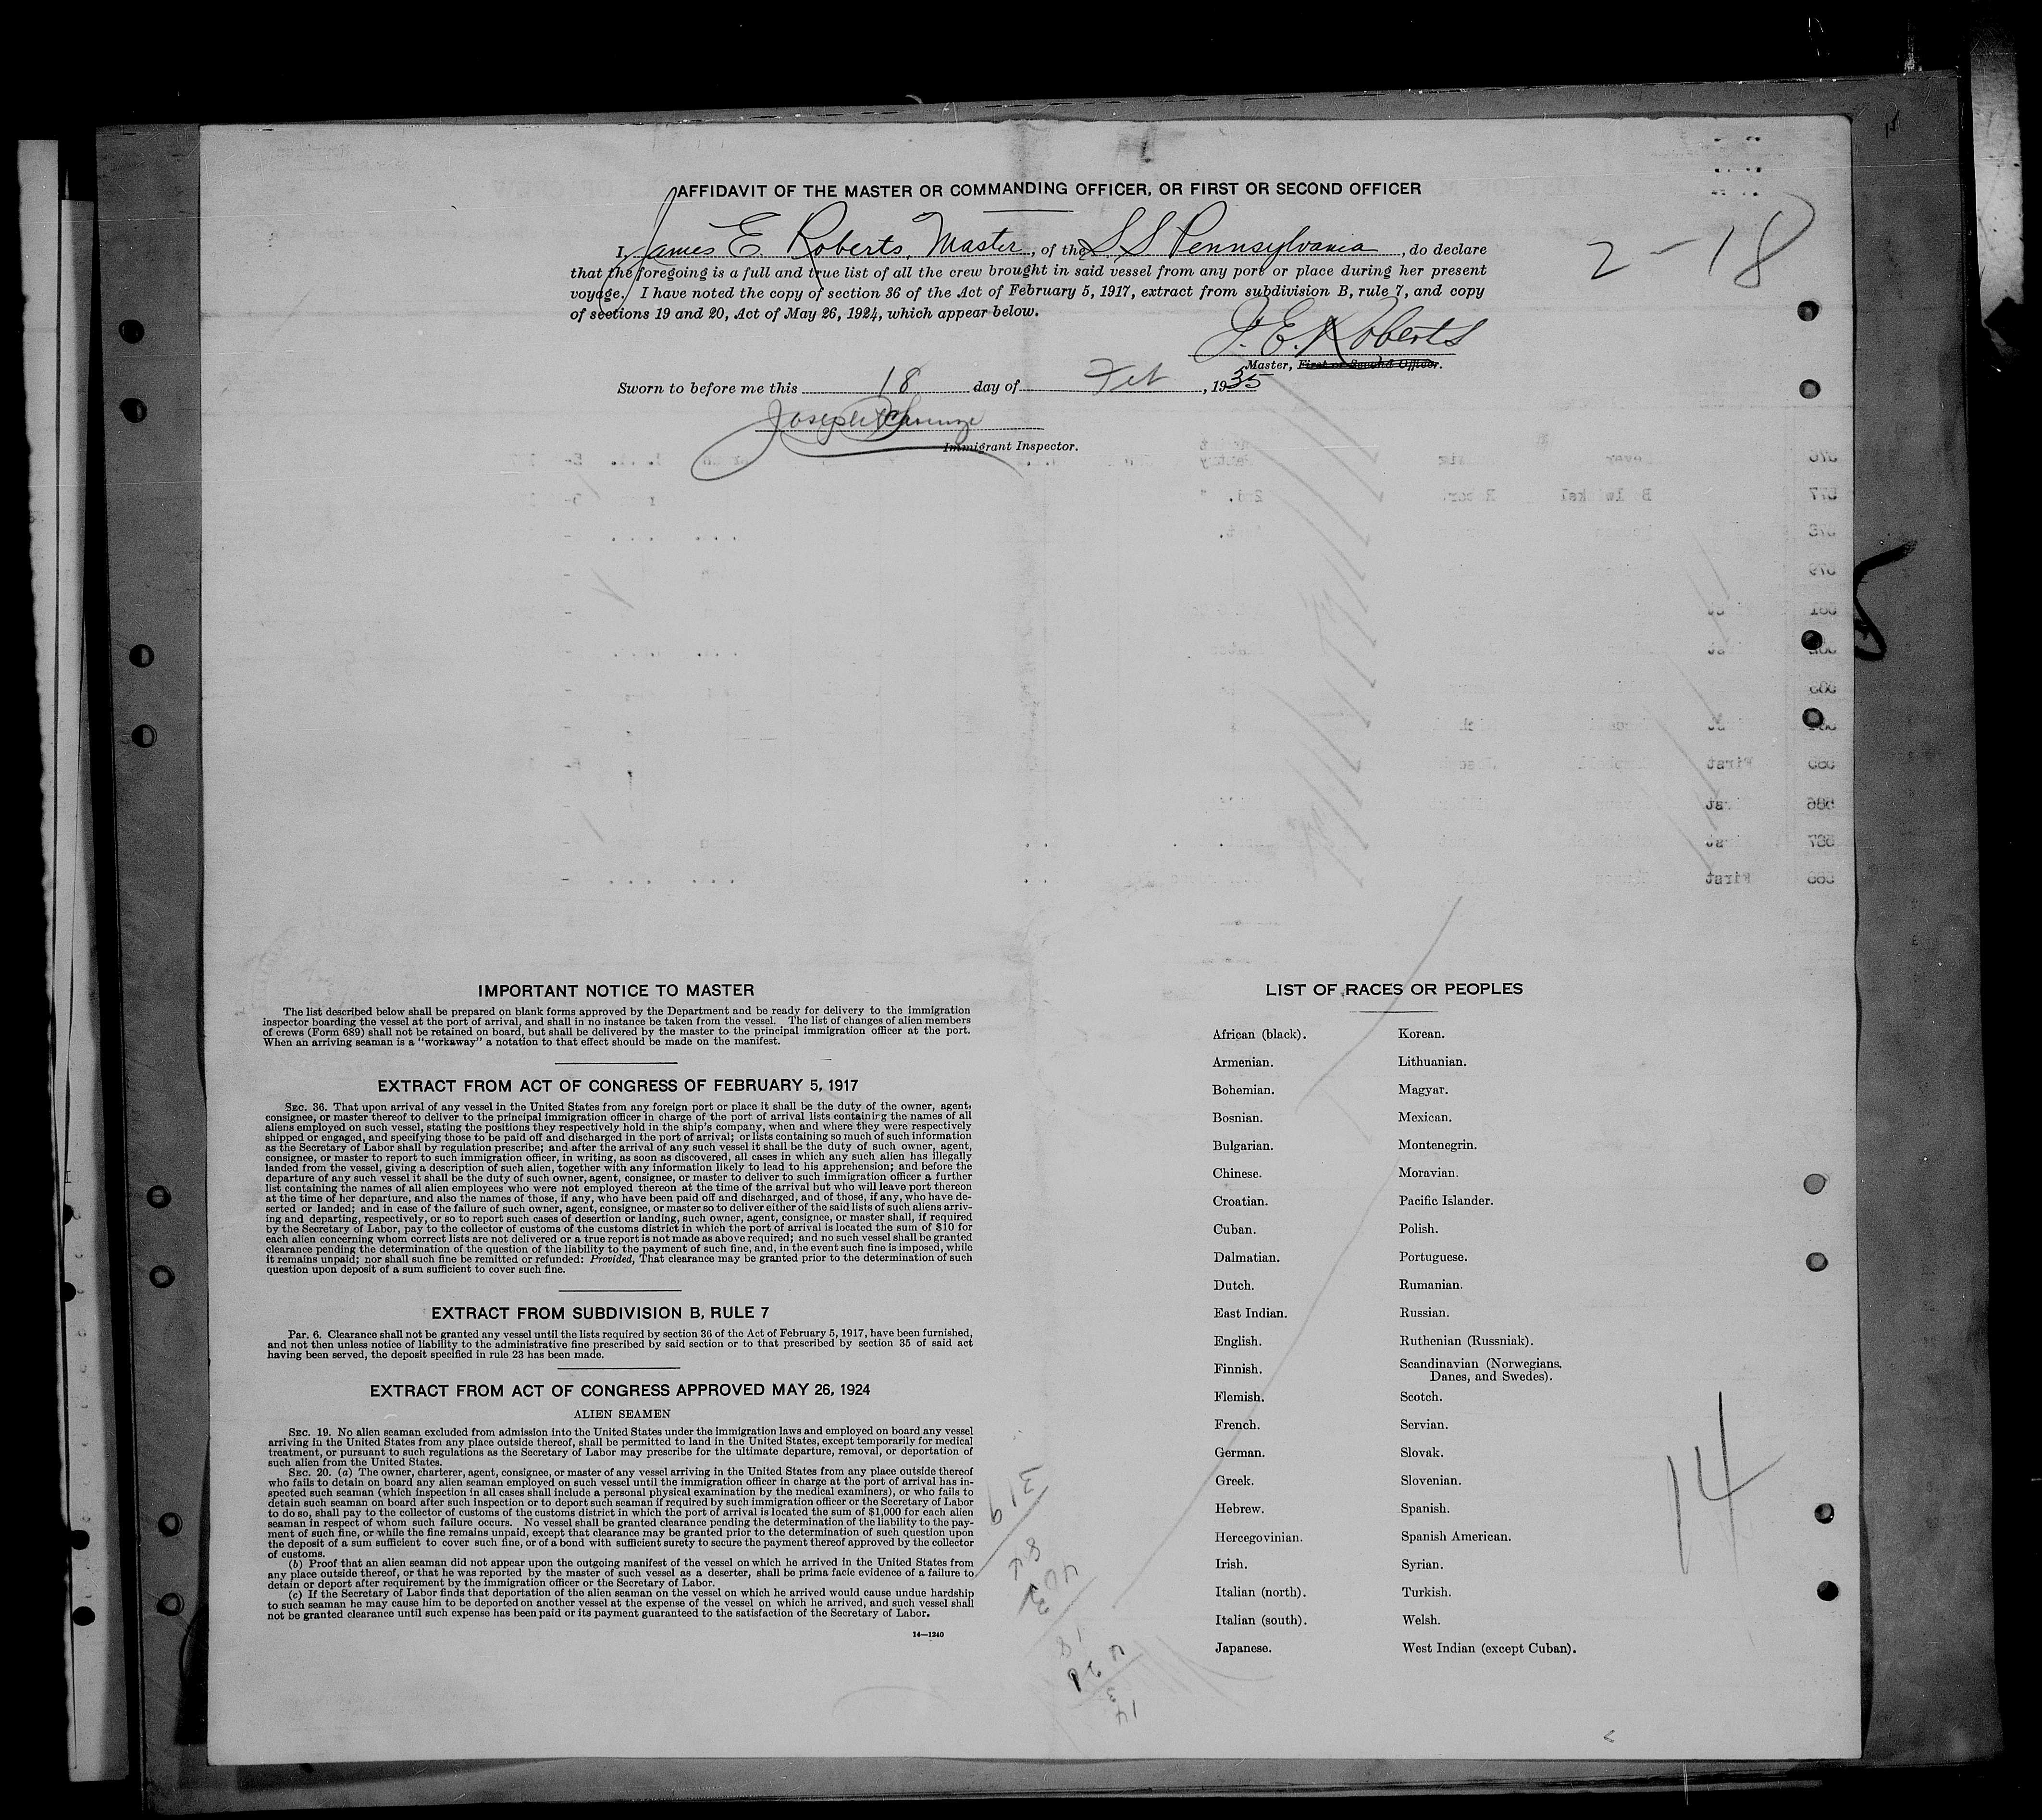 AFFIDAVIT OF THE MASTER OR COMMANDING OFFICER, OR FIRST OR SECOND OFFICER
I, James E. Roberts, Master, of the S.S. Pennsylvania, do declare
that the foregoing is a full and true list of all the crew brought in said vessel from any port or place during her present
voyage. I have noted the copy of section 36 of the Act of February 5, 1917, extract from subdivision B, rule 7, and copy
of sections 19 and 20, Act of May 26, 1924, which appear below.
2-18
J. E. Roberts
Master, First or Second Officer.
Sworn to before me this 18 day of Feb, 1935
Joseph
Immigrant Inspector.
IMPORTANT NOTICE TO MASTER
The list described below shall be prepared on blank forms approved by the Department and be ready for delivery to the immigration
inspector boarding the vessel at the port of arrival, and shall in no instance be taken from the vessel. The list of changes of alien members
of crews (Form 689) shall not be retained on board, but shall be delivered by the master to the principal immigration officer at the port.
When an arriving seaman is a "workaway" a notation to that effect should be made on the manifest.
EXTRACT FROM ACT OF CONGRESS OF FEBRUARY 5, 1917
SEC. 36. That upon arrival of any vessel in the United States from any foreign port or place it shall be the duty of the owner, agent,
consignee, or master thereof to deliver to the principal immigration officer in charge of the port of arrival lists containing the names of all
aliens employed on such vessel, stating the positions they respectively hold in the ship's company, when and where they were respectively
shipped or engaged, and specifying those to be paid off and discharged in the port of arrival; or lists containing so much of such information
as the Secretary of Labor shall by regulation prescribe; and after the arrival of any such vessel it shall be the duty of such owner, agent,
consignee, or master to report to such immigration officer, in writing, as soon as discovered, all cases in which any such alien has illegally
landed from the vessel, giving a description of such alien, together with any information likely to lead to his apprehension; and before the
departure of any such vessel it shall be the duty of such owner, agent, consignee, or master to deliver to such immigration officer a further
list containing the names of all alien employees who were not employed thereon at the time of the arrival but who will leave port thereon
at the time of her departure, and also the names of those, if any, who have been paid off and discharged, and of those, if any, who have de-
serted or landed; and in case of the failure of such owner, agent, consignee, or master so to deliver either of the said lists of such aliens arriv-
ing and departing, respectively, or so to report such cases of desertion or landing, such owner, agent, consignee, or master shall, if required
by the Secretary of Labor, pay to the collector of customs of the customs district in which the port of arrival is located the sum of $10 for
each alien concerning whom correct lists are not delivered or a true report is not made as above required; and no such vessel shall be granted
clearance pending the determination of the question of the liability to the payment of such fine, and, in the event such fine is imposed, while
it remains unpaid; nor shall such fine be remitted or refunded: Provided, That clearance may be granted prior to the determination of such
question upon deposit of a sum sufficient to cover such fine.
EXTRACT FROM SUBDIVISION B, RULE 7
Par. 6. Clearance shall not be granted any vessel until the lists required by section 36 of the Act of February 5, 1917, have been furnished,
and not then unless notice of liability to the administrative fine prescribed by said section or to that prescribed by section 35 of said act
having been served, the deposit specified in rule 23 has been made.
EXTRACT FROM ACT OF CONGRESS APPROVED MAY 26, 1924
ALIEN SEAMEN
SEC. 19. No alien seaman excluded from admission into the United States under the immigration laws and employed on board any vessel
arriving in the United States from any place outside thereof, shall be permitted to land in the United States, except temporarily for medical
treatment, or pursuant to such regulations as the Secretary of Labor may prescribe for the ultimate departure, removal, or deportation of
such alien from the United States.
SEC. 20. (a) The owner, charterer, agent, consignee, or master of any vessel arriving in the United States from any place outside thereof
who fails to detain on board any alien seaman employed on such vessel until the immigration officer in charge at the port of arrival has in-
spected such seaman (which inspection in all cases shall include a personal physical examination by the medical examiners), or who fails to
detain such seaman on board after such inspection or to deport such seaman if required by such immigration officer or the Secretary of Labor
to do so, shall pay to the collector of customs of the customs district in which the port of arrival is located the sum of $1,000 for each alien
seaman in respect of whom such failure occurs. No vessel shall be granted clearance pending the determination of the liability to the pay-
ment of such fine, or while the fine remains unpaid, except that clearance may be granted prior to the determination of such question upon
the deposit of a sum sufficient to cover such fine, or of a bond with sufficient surety to secure the payment thereof approved by the collector
of customs.
(b) Proof that an alien seaman did not appear upon the outgoing manifest of the vessel on which he arrived in the United States from
any place outside thereof, or that he was reported by the master of such vessel as a deserter, shall be prima facie evidence of a failure to
detain or deport after requirement by the immigration officer or the Secretary of Labor.
(c) If the Secretary of Labor finds that deportation of the alien seaman on the vessel on which he arrived would cause undue hardship
to such seaman he may cause him to be deported on another vessel at the expense of the vessel on which he arrived, and such vessel shall
not be granted clearance until such expense has been paid or its payment guaranteed to the satisfaction of the Secretary of Labor.
14—1240
LIST OF RACES OR PEOPLES
African (black).
Armenian.
Bohemian.
Bosnian.
Bulgarian.
Chinese.
Croatian.
Cuban.
Dalmatian.
Dutch.
East Indian.
English.
Finnish.
Flemish.
French.
German.
Greek.
Hebrew.
Hercegovinian.
Irish.
Italian (north).
Italian (south).
Japanese.
Korean.
Lithuanian.
Magyar.
Mexican.
Montenegrin.
Moravian.
Pacific Islander.
Polish.
Portuguese.
Rumanian.
Russian.
Ruthenian (Russniak).
Scandinavian (Norwegians,
Danes, and Swedes).
Scotch.
Servian.
Slovak.
Slovenian.
Spanish.
Spanish American.
Syrian.
Turkish.
Welsh.
West Indian (except Cuban).
14